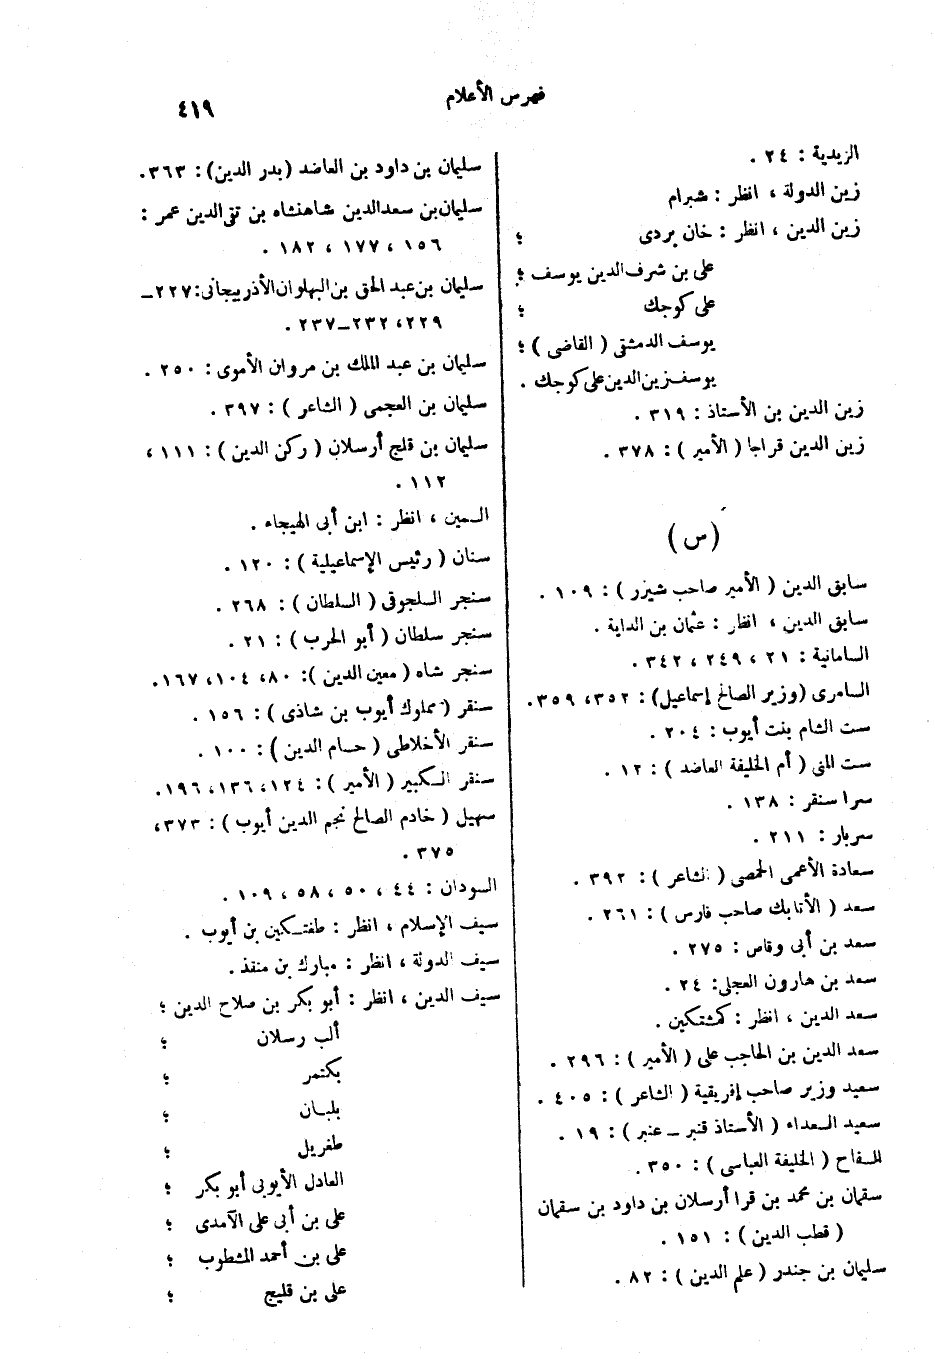 فهرس الأعلام
٤١٩
الزيدية : ٢٤ .
زين الدولة ، انظر : شبرام
زين الدين ، انظر : خان بردى ؛
على بن شرف الدين يوسف ؛
على كوجك ؛
يوسف الدمشقى ( القاضى ) ؛
يوسف زين الدين على كوجك .
زين الدين بن الأستاذ : ٣١٩ .
زين الدين قراجا ( الأمير ) : ٣٧٨ .
( س )
سابق الدين ( الأمير صاحب شيزر ) : ١٠٩ .
سابق الدين ، انظر : عثمان بن الداية .
السامانية : ٢١ ، ٢٤٩ ، ٣٤٢ .
السامرى (وزير الصالح إسماعيل) : ٣٥٢، ٣٥٩.
ست الشام بنت أيوب : ٢٠٤ .
ست المنى ( أم الخليفة العاضد ) : ١٢ .
سرا سنقر : ١٣٨ .
سربار : ٢١١ .
سعادة الأعمى الحمصى ( الشاعر ) : ٣٩٢ .
سعد ( الأتابك صاحب فارس ) : ٢٦١ .
سعد بن أبى وقاص : ٢٧٥ .
سعد بن هارون العجلى: ٢٤ .
سعد الدين ، انظر : كمشتكين .
سعد الدين بن الحاجب على ( الأمير ) : ٢٩٦ .
سعيد وزير صاحب إفريقية ( الشاعر ) : ٤٠٥ .
سعيد السعداء ( الأستاذ قنبر – عنبر ) : ١٩ .
السفاح ( الخليفة العباسى ) : ٣٥٠ .
سقمان بن محمد بن قرا أرسلان بن داود بن سقمان
( قطب الدين ) : ١٥١ .
سليمان بن جندر ( علم الدين ) : ٨٢ .
سليمان بن داود بن العاضد (بدر الدين) : ٣٦٣.
سليمان بن سعد الدين شاهنشاه بن تقى الدين عمر :
١٥٦ ، ١٧٧ ، ١٨٢ .
سليمان بن عبد الحق بن البهلوان الأذربيجانى : ٢٢٧–
٢٢٩، ٢٣٢–٢٣٧ .
سليمان بن عبد الملك بن مروان الأموى : ٢٥٠ .
سليمان بن العجمى ( الشاعر ) : ٣٩٧ .
سليمان بن قلج أرسلان ( ركن الدين ) : ١١١ ،
١١٢ .
السمين ، انظر : ابن أبى الهيجاء .
سنان ( رئيس الإسماعيلية ) : ١٢٠ .
سنجر السلجوقى ( السلطان ) : ٢٦٨ .
سنجر سلطان ( أبو الحرب ) : ٢١ .
سنجر شاه ( معين الدين ) : ٨٠، ١٠٤، ١٦٧.
سنقر ( مملوك أيوب بن شاذى ) : ١٥٦ .
سنقر الأخلاطى ( حسام الدين ) : ١٠٠ .
سنقر الكبير ( الأمير ) : ١٢٤، ١٣٦، ١٩٦.
سهيل ( خادم الصالح نجم الدين أيوب ) : ٣٧٣،
٣٧٥ .
السودان : ٤٤ ، ٥٠ ، ٥٨ ، ١٠٩ .
سيف الإسلام ، انظر : طغتكين بن أيوب .
سيف الدولة ، انظر : مبارك بن منقذ .
سيف الدين ، انظر : أبو بكر بن صلاح الدين ؛
ألب رسلان ؛
بكتمر ؛
بلبان ؛
طغريل ؛
العادل الأيوبى أبو بكر ؛
على بن أبى على الآمدى ؛
على بن أحمد المشطوب ؛
على بن قليج ؛